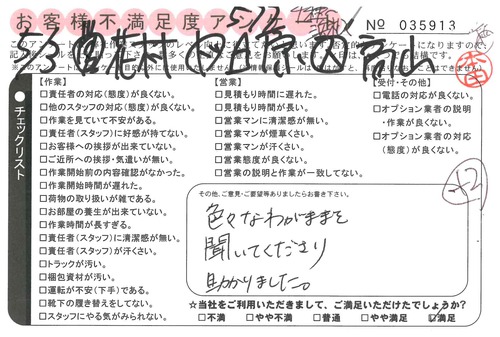 お客様不満足度アン
5/2
№ 035913
【作業】
□責任者の対応(態度)が良くない。
□他のスタッフの対応(態度)が良くない。
□作業を見ていて不安がある。
□責任者(スタッフ)に好感が持てない。
□お客様への挨拶が出来ていない。
□ご近所への挨拶・気遣いが無い。
□作業開始前の内容確認がなかった。
□作業開始時間が遅れた。
□荷物の取り扱いが雑である。
□お部屋の養生が出来ていない。
□作業時間が長すぎる。
□責任者(スタッフ)に清潔感が無い。
□責任者(スタッフ)が汗くさい。
□トラックが汚い。
□梱包資材が汚い。
□運転が不安(下手)である。
□靴下の履き替えをしてない。
□スタッフにやる気がみられない。
【営業】
□見積もり時間に遅れた。
□見積もり時間が長い。
□営業マンに清潔感が無い。
□営業マンが煙草くさい。
□営業マンが汗くさい。
□営業態度が良くない。
□営業の説明と作業が一致してない。
【受付・その他】
□電話の対応が良くない。
□オプション業者の説明
・作業が良くない。
□オプション業者の対応
(態度)が良くない。
チェックリスト
+2
その他、ご意見・ご要望等ありましたらお書き下さい。
色々なわがままを
聞いてくださり
助かりました。
☆当社をご利用いただきまして、ご満足いただけたでしょうか?
□不満 □やや不満 □普通 □やや満足 ☑満足